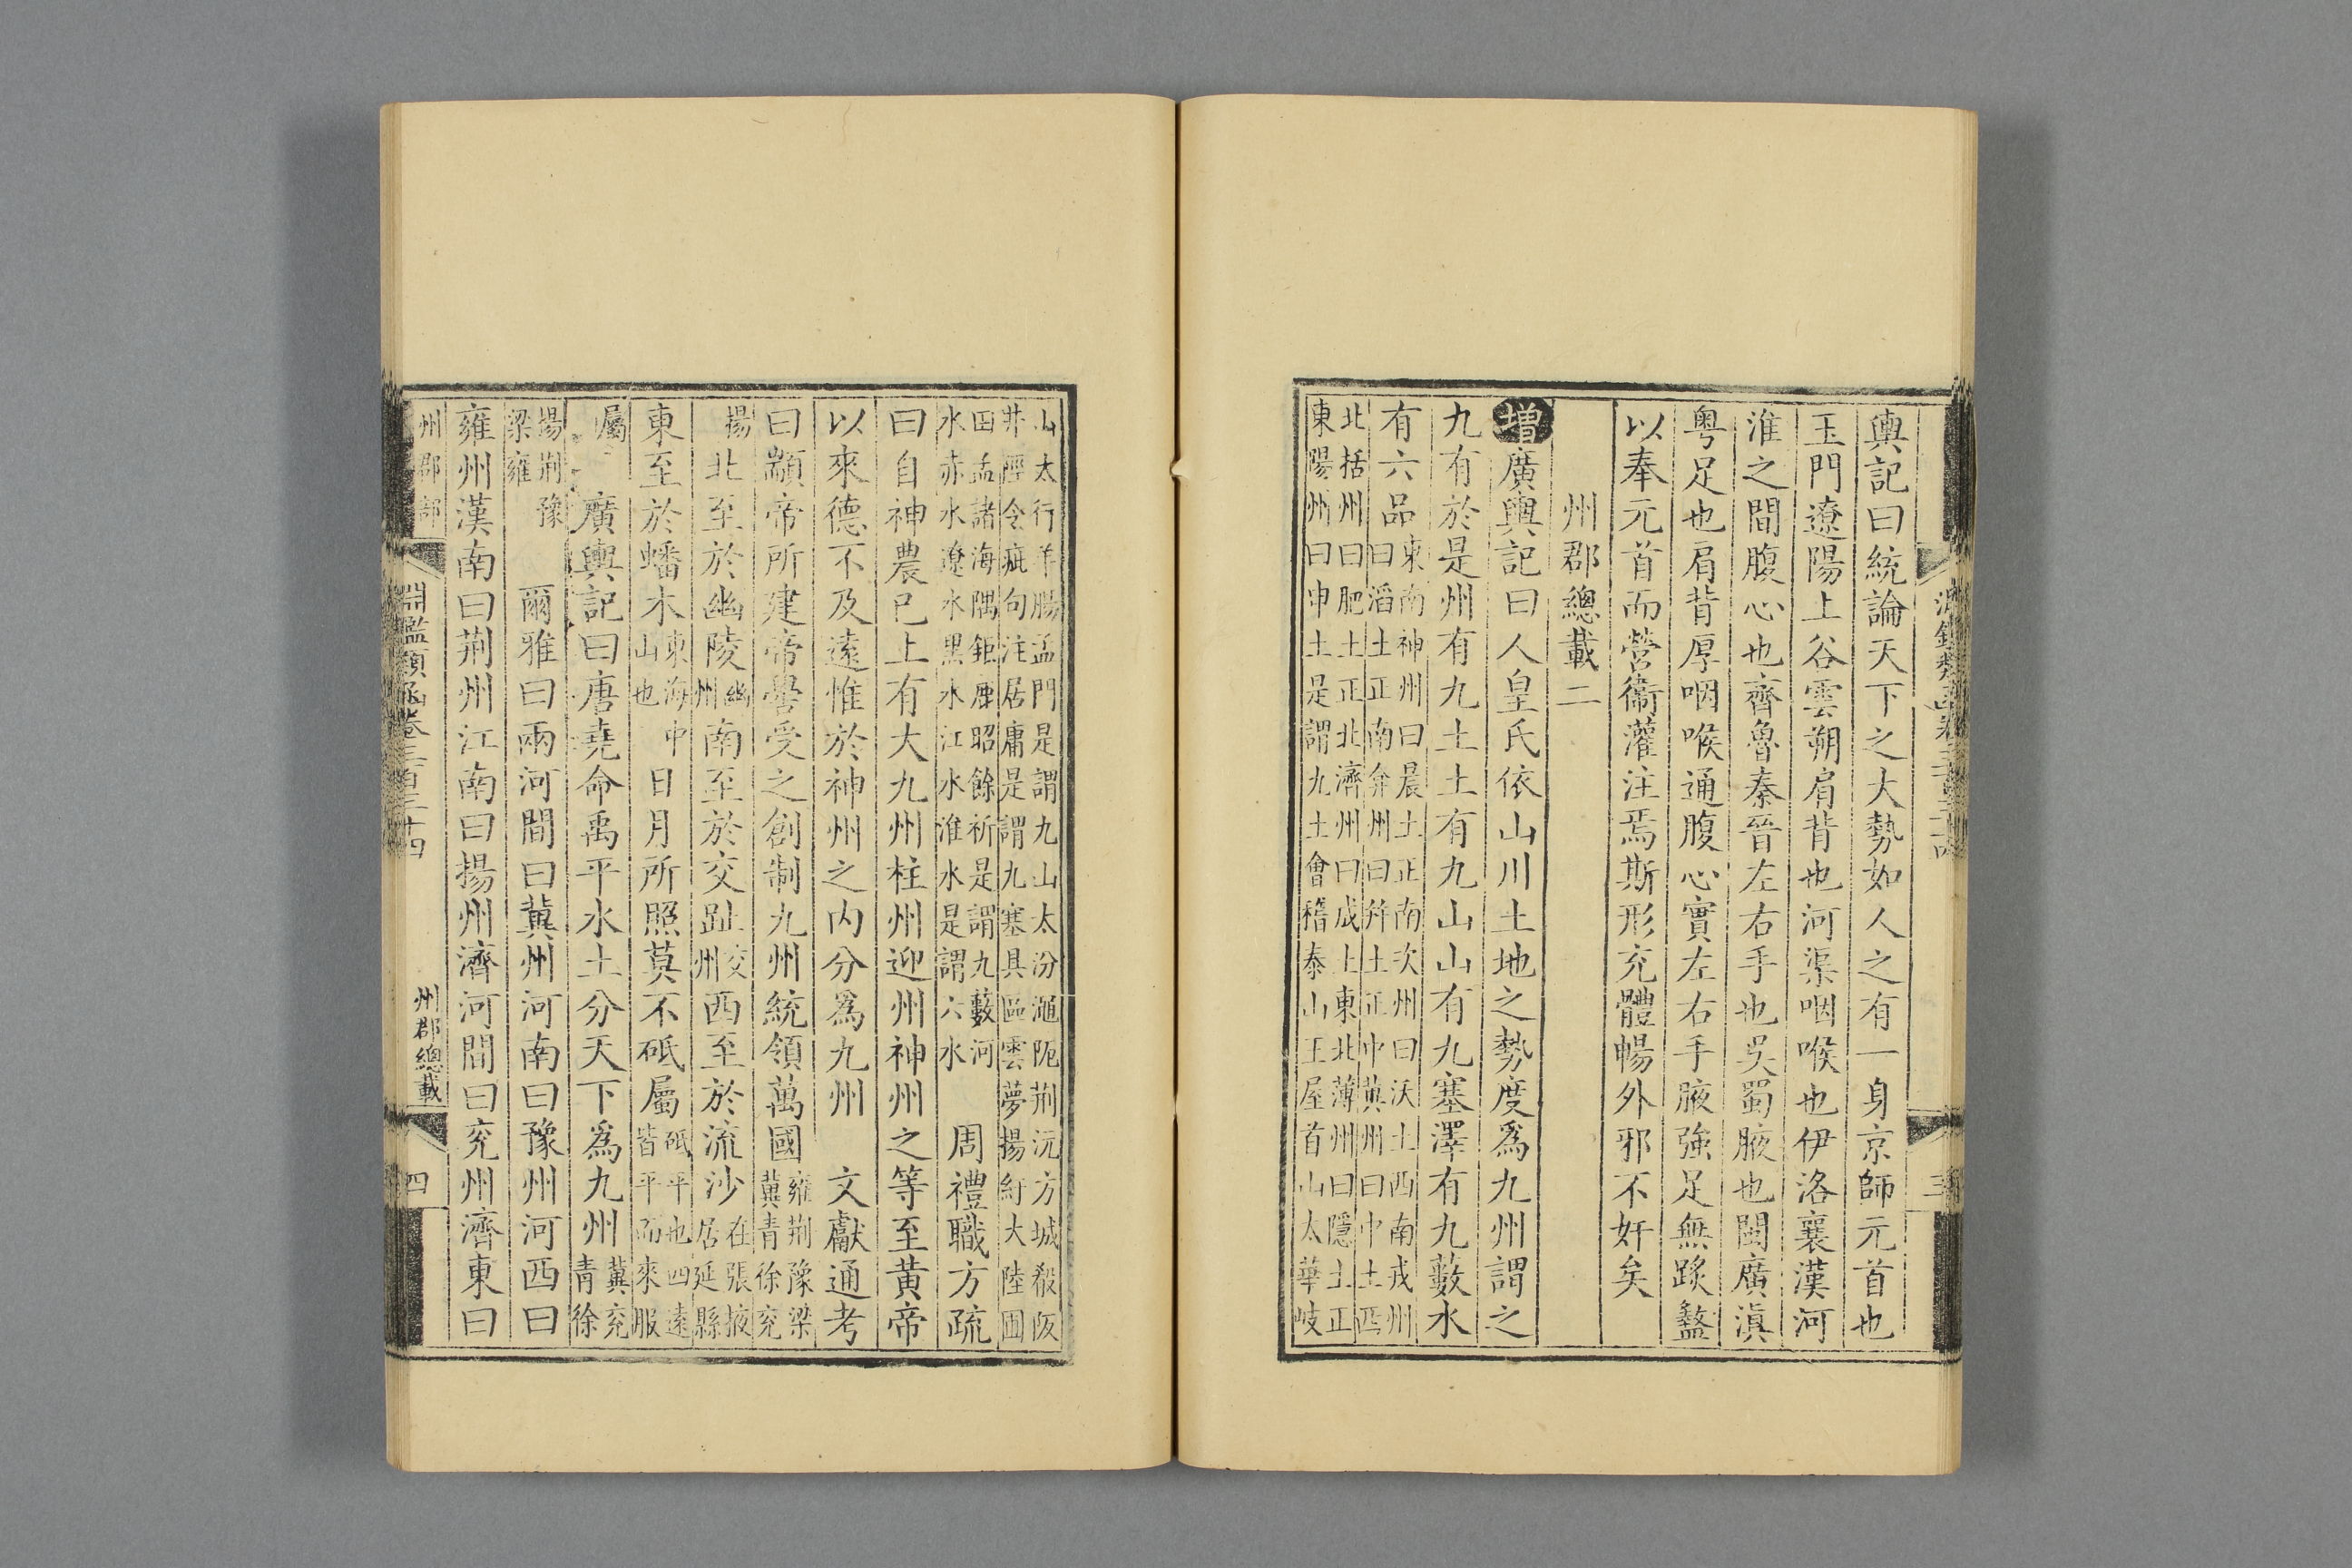 輿記曰統論天下之大勢如人之有一身京師元首也
玉門遼陽上谷雲朔肩背也河渠咽喉也伊洛襄漢河
淮之間腹心也齊魯秦晉左右手也吳蜀腋也閩廣滇
粤足也肩背厚咽喉通腹心實左右手腋強足無跤盭
以奉元首而營衞灌注焉斯形充體暢外邪不奸矣
州郡總載二
增廣輿記曰人皇氏依山川土地之勢度爲九州謂之
九有於是州有九土土有九山山有九塞澤有九藪水
有六品東南神州曰晨土正南次州曰沃土西南戎州
曰滔土正南弇州曰幷土正中冀州曰中土西
北括州曰肥土正北濟州曰成土東北薄州曰隱土正
東陽州曰申土是謂九土會稽泰山王屋首山太華岐
山太行羊腸孟門是謂九山太汾澠阨荆沅方城殽阪
井陘令疵句注居庸是謂九塞具區雲夢揚紆大陸圃
田孟諸海隅鉅鹿昭餘祈是謂九藪河
水赤水遼水黑水江水淮水是謂六水
周禮職方疏
曰自神農已上有大九州柱州迎州神州之等至黃帝
以來德不及遠惟於神州之内分爲九州 文獻通考
曰顓帝所建帝嚳受之創制九州統領萬國雍荆豫梁
冀青徐兖
揚 北至於幽陵幽州南至於交趾交州西至於流沙在張掖居延縣
東至於蟠木東海中山也日月所照莫不砥屬砥平也四遠皆平而來服
屬 廣輿記曰唐堯命禹平水土分天下爲九州冀兖青徐
揚荆豫梁雍 爾雅曰兩河間曰冀州河南曰豫州河西曰
雍州漢南曰荆州江南曰揚州濟河間曰兖州濟東曰
州郡部
淵鑑類函卷三百三十四
州郡總載
四